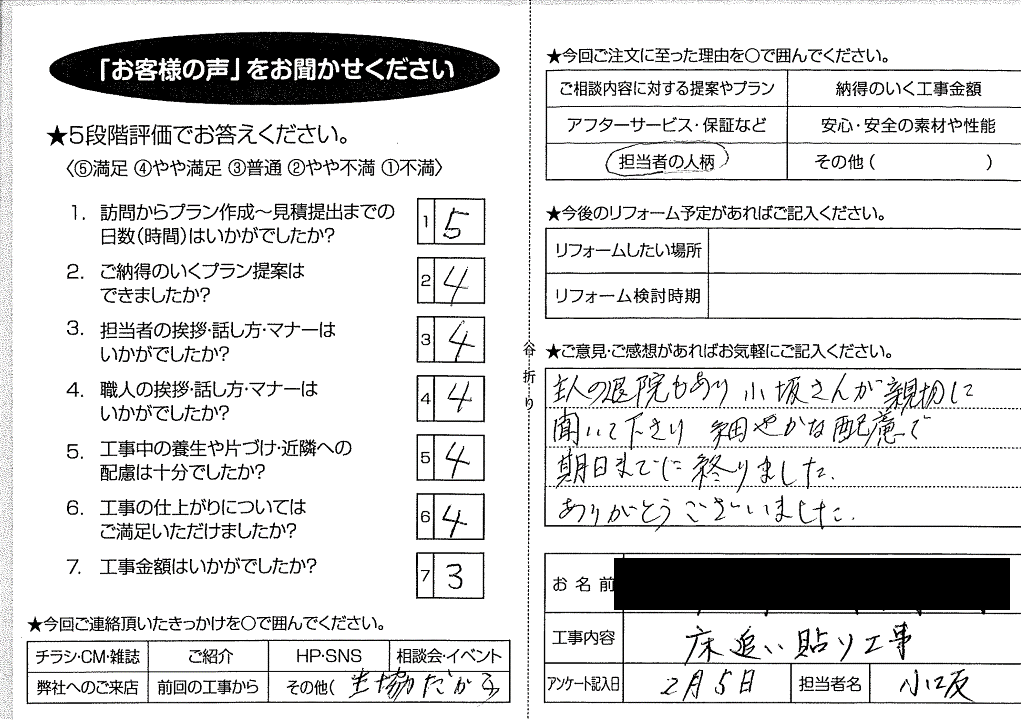 「お客様の声」をお聞かせください
★5段階評価でお答えください。
〈⑤満足 ④やや満足 ③普通 ②やや不満 ①不満〉
1. 訪問からプラン作成～見積提出までの
日数(時間)はいかがでしたか?
1 5
2. ご納得のいくプラン提案は
できましたか?
2 4
3. 担当者の挨拶・話し方・マナーは
いかがでしたか?
3 4
4. 職人の挨拶・話し方・マナーは
いかがでしたか?
4 4
5. 工事中の養生や片づけ・近隣への
配慮は十分でしたか?
5 4
6. 工事の仕上がりについては
ご満足いただけましたか?
6 4
7. 工事金額はいかがでしたか?
7 3
★今回ご連絡頂いたきっかけを○で囲んでください。
チラシ・CM・雑誌 ご紹介 HP・SNS 相談会・イベント
弊社へのご来店 前回の工事から その他( 生協だから
谷折り
★今回ご注文に至った理由を○で囲んでください。
ご相談内容に対する提案やプラン 納得のいく工事金額
アフターサービス・保証など 安心・安全の素材や性能
担当者の人柄 その他( )
★今後のリフォーム予定があればご記入ください。
リフォームしたい場所
リフォーム検討時期
★ご意見・ご感想があればお気軽にご記入ください。
主人の退院もあり 小坂さんが親切に
聞いて下さり 細やかな配慮で
期日までに終りました.
ありがとうございました.
お名前
工事内容 床追い貼り工事
アンケート記入日 2月5日 担当者名 小坂